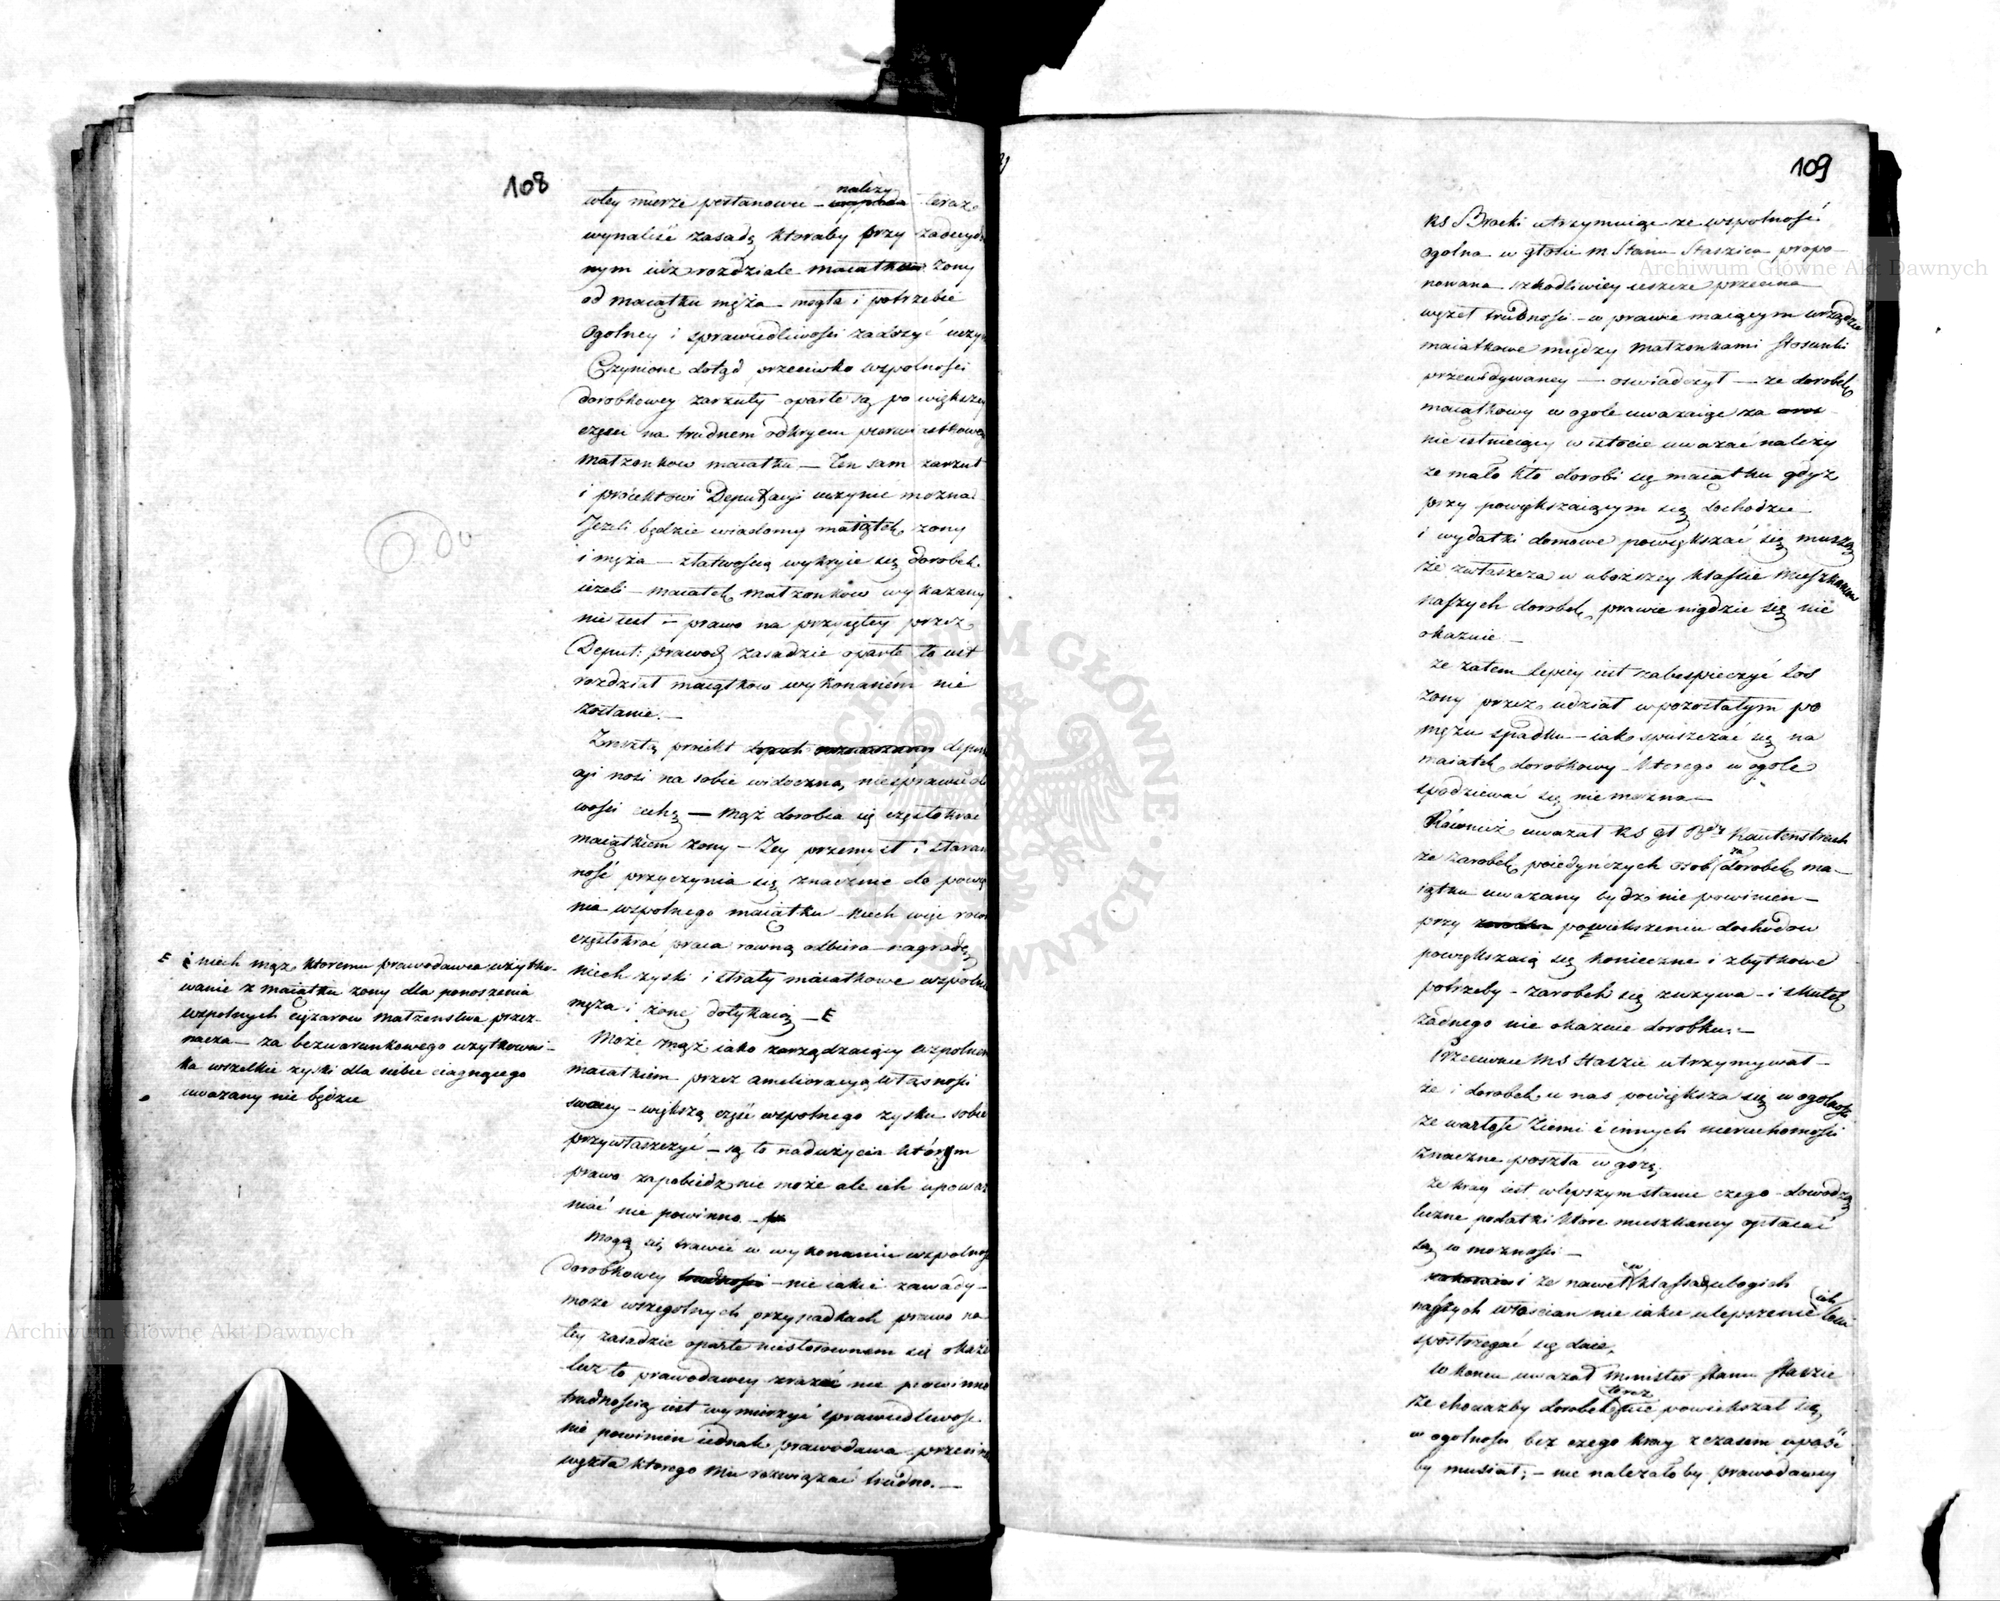 108
wtey mierze postanowić – należy teraz
wynaleść zasadę któraby przy zadecydo
nym iuż rozdziale maiatkow żony
od maiątku męża – mogła i potrzebie
ogolney i sprawiedliwości zadosyć uczyn
Czynione dotąd przeciwko wspolności
dorobkowey zarzuty oparte są po większey
części na trudnem odkryciu pierwiastkowego
Małżonkow maiatku – Ten sam zarzut
i proiektowi Deputacyi uczynić można
Jeżeli będzie wiadomy maiątek żony
i męża – złatwością wykryie się dorobek
ieżeli – maiatek Małżonkow wykazany
nie iest – prawo na przyiętey przez
Deput: prawod zasadzie oparte to iest
rozdział maiątkow wykonaném nie
zostanie. –
Zresztą proiekt depu
acyi nosi na sobie widoczną niesprawiedli
wości cechę – Mąż dorobia się częstokroć
maiątkiem żony – Jey przemysł i staran
ność przyczynia się znacznie do powię
nia wspolnego maiatku – niech więc rown
częstokroć praca rowną odbiera nagrodę
niech zyski i straty maiatkowe wspolnie
męża i żonę dotykaią – E
Może mąż iako zarządzaiący wspolnem
maiatkiem przez amelioracyą własności
swoiey – większą część wspolnego zysku sobie
przywłaszczyć – są to nadużycia którym
prawo zapobiedz nie może ale ich upoważ
niać nie powinno –
Mogą się trawić w wykonaniu wspolnoś
dorobkowey trudności – nie iakie zawady –
może wszególnych przypadkach prawo na
tey zasadzie oparte niestosownem się okaże
lecz to prawodawcy zrazać nie powinno
trudnością iest wymierzyć sprawiedliwość
nie powinien iednak prawodawca przecin
węzła ktorego mu rozwiązać trudno. –
E i niech mąż któremu prawodawca użytko-
wanie z maiątku żony dla ponoszenia
wspolnych ciężarow Małżenstwa przez-
nacza – za bezwarunkowego użytkowni-
ka wszelkie zyski dla siebie ciągnącego
uważany nie będzie
do
109
RS Brocki utrzymuiąc że wspolność
ogolna w głosie M Stanu Staszica propo-
nowana szkodliwiey ieszcze przecina
węzeł trudności – w prawie maiącym urządzić
maiatkowe między Małżonkami stosunki
– oswiadczył – że dorobek
maiątkowy w ogole uważaiąc za
nie istnieiący w istocie uważać należy
że mało kto dorobi się maiątku gdyż
przy powiększaiącym się dochodzie
i wydatki domowe powiększać się muszą
że zwłaszcza w uboższey klassie Mieszkancow
naszych dorobek prawie nigdzie się nie
okazuie –
że zatem lepiey iest zabespieczyć los
żony przez udział w pozostałym po
mężu spadku – iak spuszczać się na
maiatek dorobkowy – ktorego w ogole
spodziewać się nie można –
Rownież uważał RS gł Hautenstrauch
że zarobek poiedynczych osob za dorobek ma-
iątku uważany bydz nie powinien –
przy powiekszeniu dochodow
powiększaią się konieczne i zbytkowe
potrzeby – zarobek się zużywa – i skutek
żadnego nie okazuie dorobku. –
Przeciwnie MS Staszic utrzymywał –
że i dorobek u nas powiększa się w ogolnośc
że wartość Ziemi i innych nieruchomości
znacznie poszła w górę.
że kray iest w lepszym stanie czego dowodzą
liczne podatki które mieszkancy opłacać
są w możności –
i że nawet w klassach ubogich
naszych włościan nie iakie ulepszenie ich losu
spostrzegać się daie,
W koncu uważał Minister Stanu Staszic
że chociażby dorobek teraz nie powiekszał się
w ogolności bez czego kray z czasem upaść
by musiał; – nie należałoby prawodawcy
Archiwum Główne Akt Dawnych
Archiwum Główne Akt Dawnych
ARCHIWUM GŁÓWNE AKT DAWNYCH